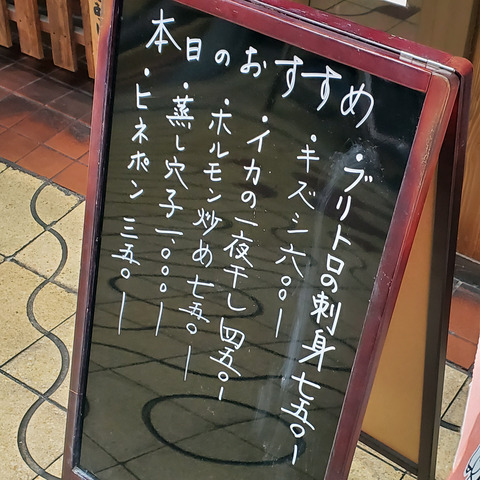 本日のおすすめ
・ブリトロの刺身 七五〇ー
・キズシ 六〇〇ー
・イカの一夜干し 四五〇ー
・ホルモン炒め 七五〇ー
・蒸し穴子 一、〇〇〇ー
・ヒネポン 三五〇ー